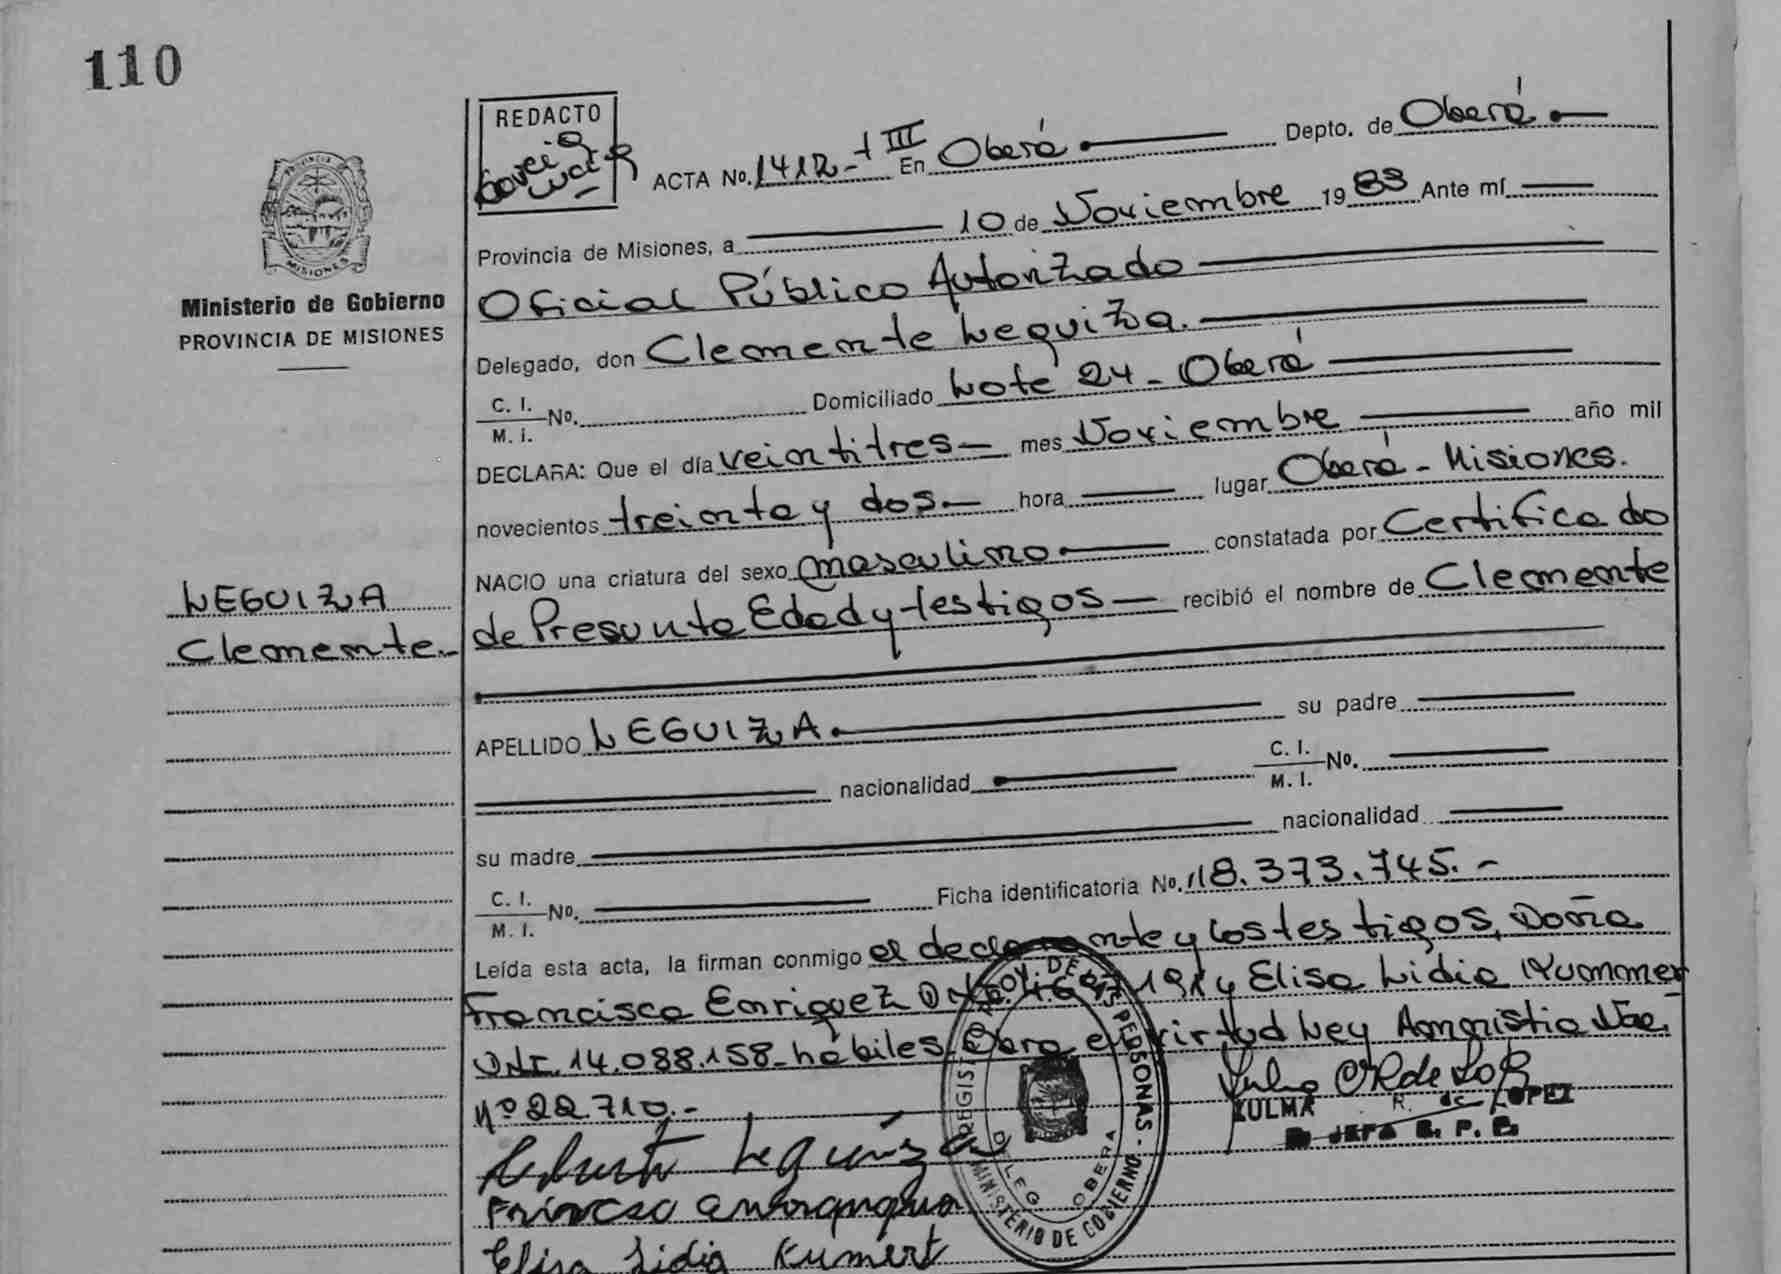 110
REDACTO
ACTA No. 1412 - t III En Oberá Depto. de Oberá
PROVINCIA DE
MISIONES
Provincia de Misiones, a 10 de Noviembre 1983 Ante mí
Ministerio de Gobierno
PROVINCIA DE MISIONES
Oficial Público Autorizado
Delegado, don Clemente Leguiza.
C. I.
M. I. No. Domiciliado Lote 24 - Oberá
DECLARA: Que el día veintitres - mes Noviembre año mil
novecientos treinta y dos - hora lugar Oberá - Misiones.
NACIO una criatura del sexo masculino constatada por Certificado
LEGUIZA
Clemente.-
de Presunta Edad y testigos - recibió el nombre de Clemente
APELLIDO LEGUIZA. su padre
nacionalidad C. I.
M. I. No.
su madre nacionalidad
C. I.
M. I. No. Ficha identificatoria No. 18.373.745.-
Leída esta acta, la firman conmigo el declarante y los testigos, Doña
Francisca Enriquez y Elisa Lidia
D.N.I. 14.088.158- hábiles. Obra en virtud Ley Amnistia Nac.
Nº 22.710.-
REGISTRO DE LAS PERSONAS - MINISTERIO DE GOBIERNO
DELEG OBERA
ZULMA R. de LOPEZ
JEFA R. P. P.
Leguiza
Elisa Lidia Kumert